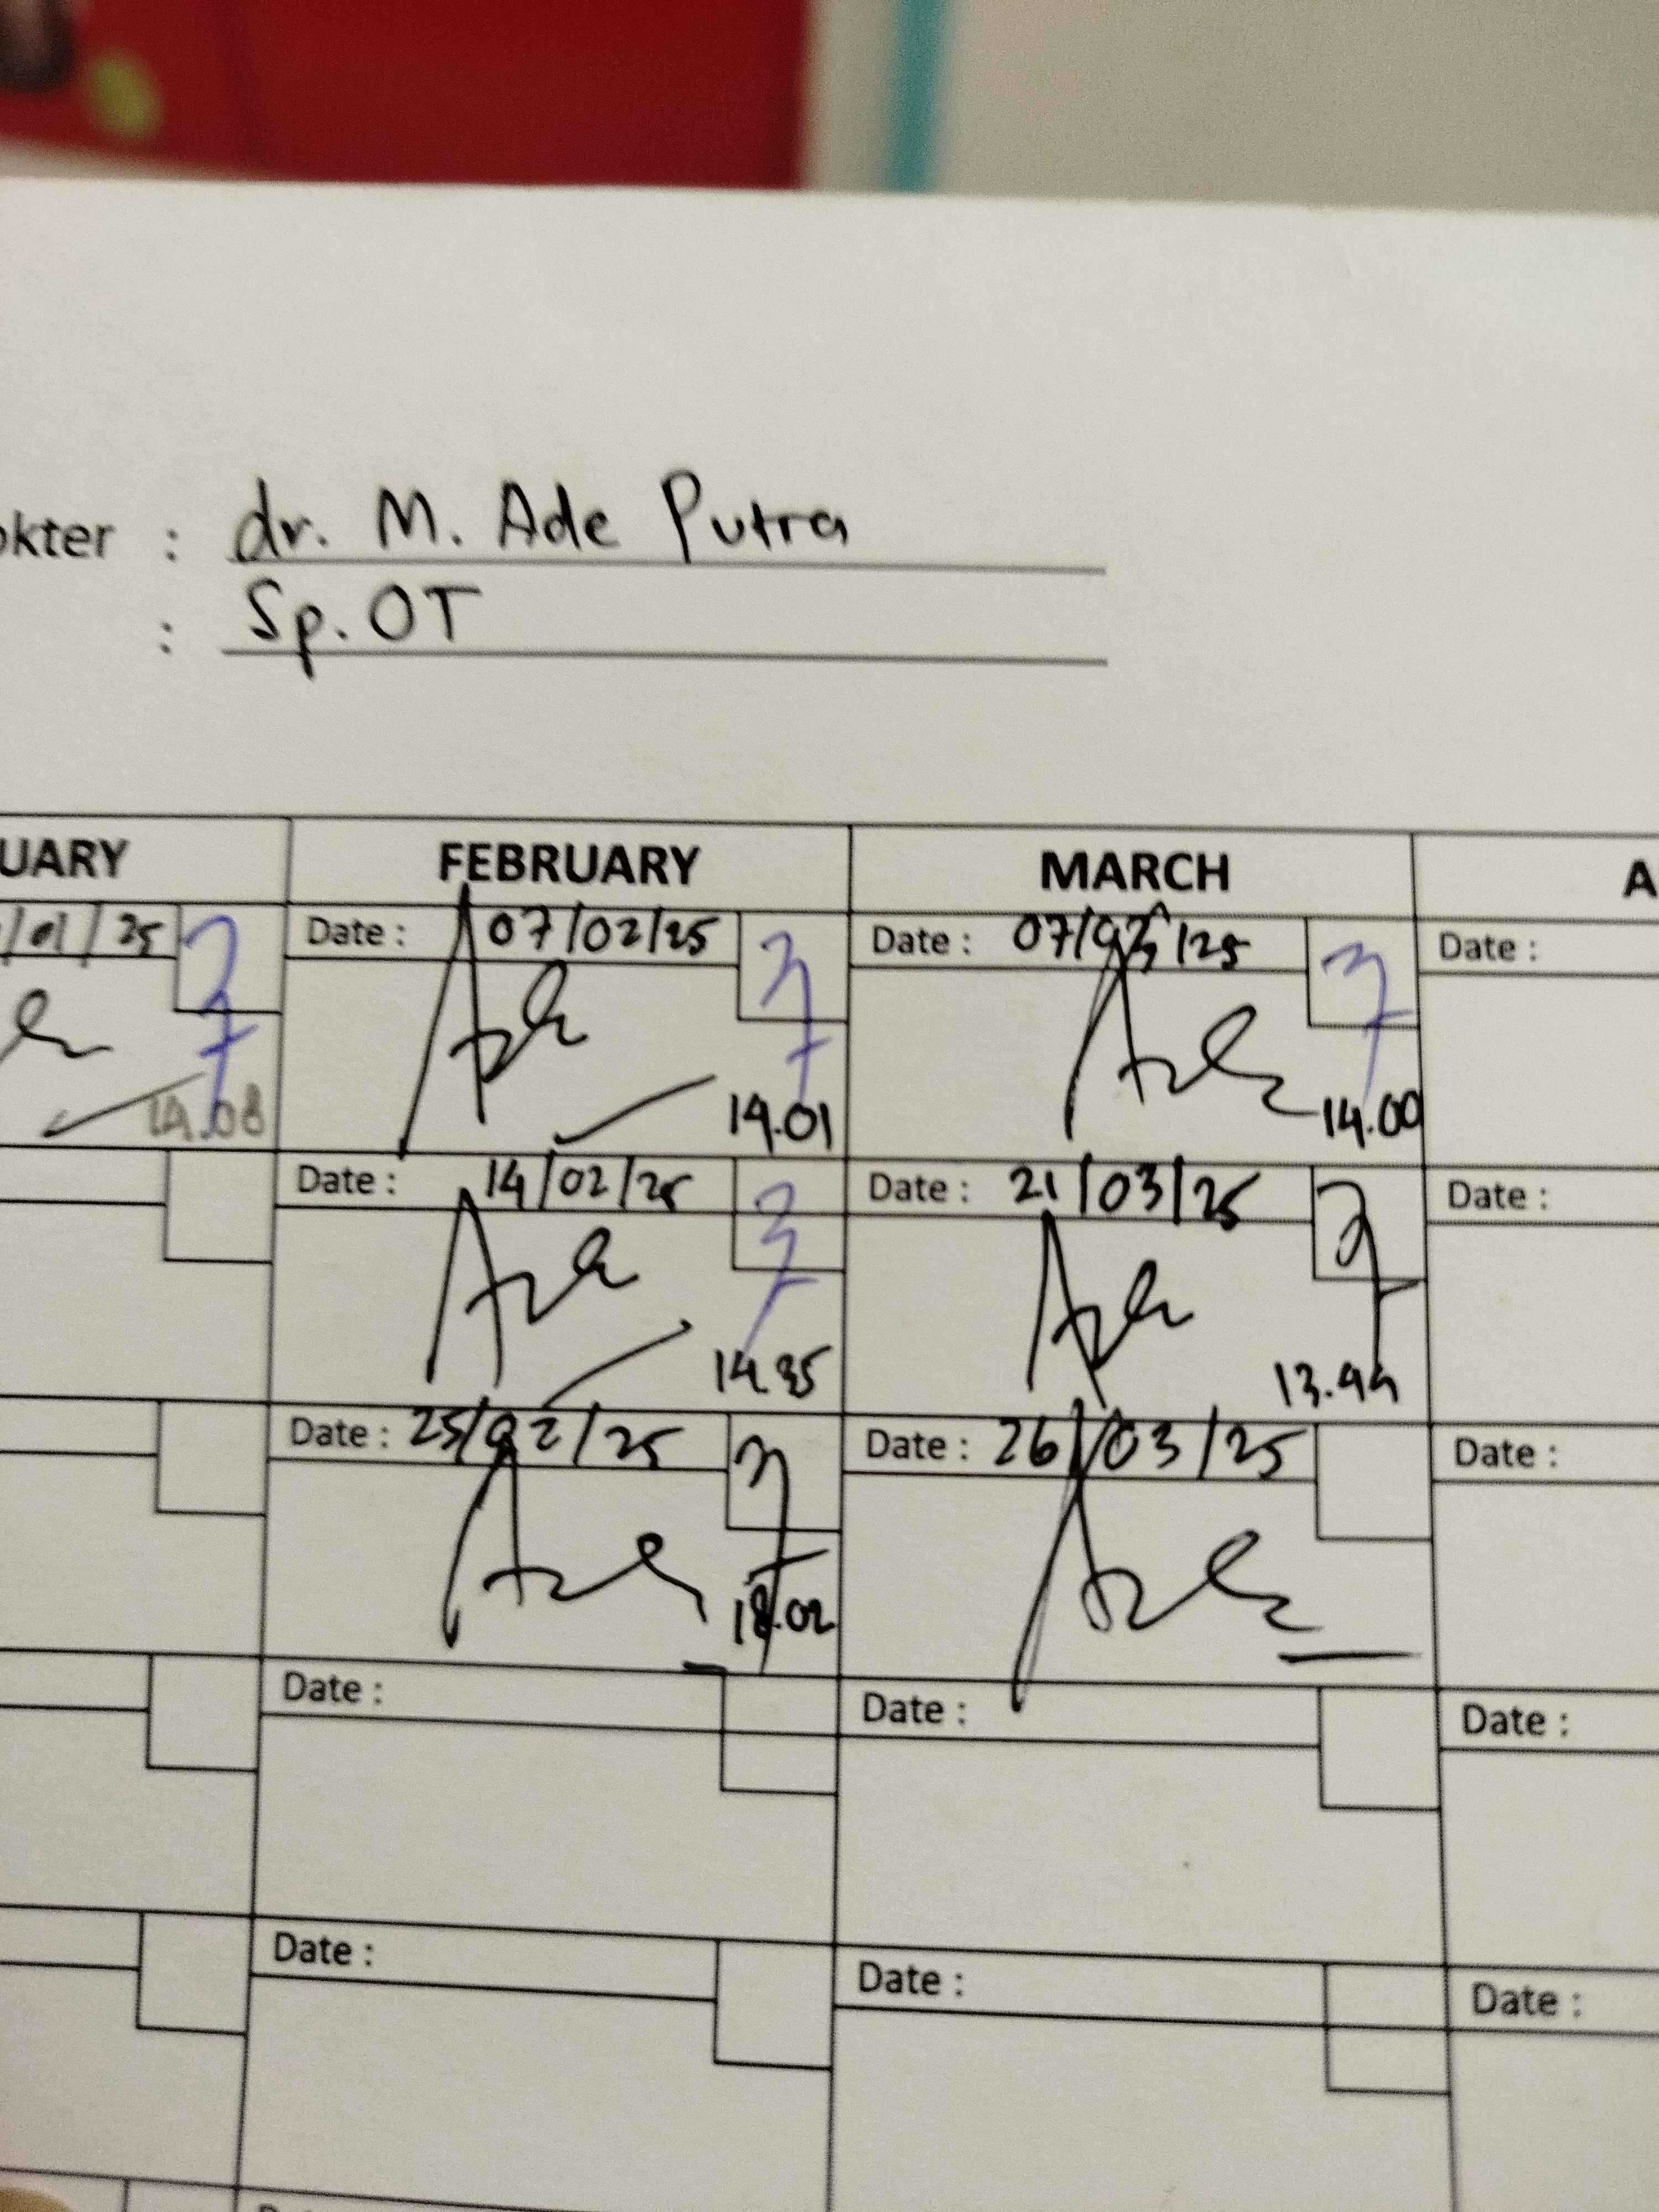 okter : dr. M. Ade Putra
: Sp. OT
UARY FEBRUARY MARCH A
/01/25 Date : 07/02/25 Date : 07/03/25 Date :
14.08 14.01 14.00
Date : 14/02/25 Date : 21/03/25 Date :
14.35 13.44
Date : 25/02/25 Date : 26/03/25 Date :
18.02
Date : Date : Date :
Date : Date : Date :